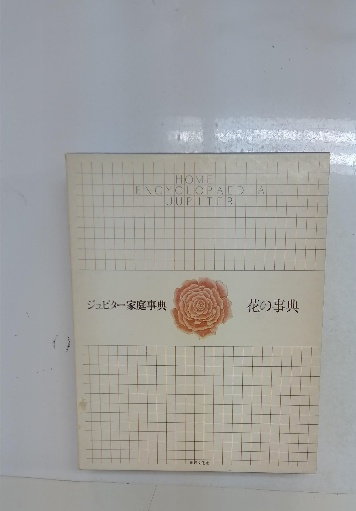 HOME
ENCYCLOPAEDIA
JUPITER
ジュピター家庭事典
花の事典